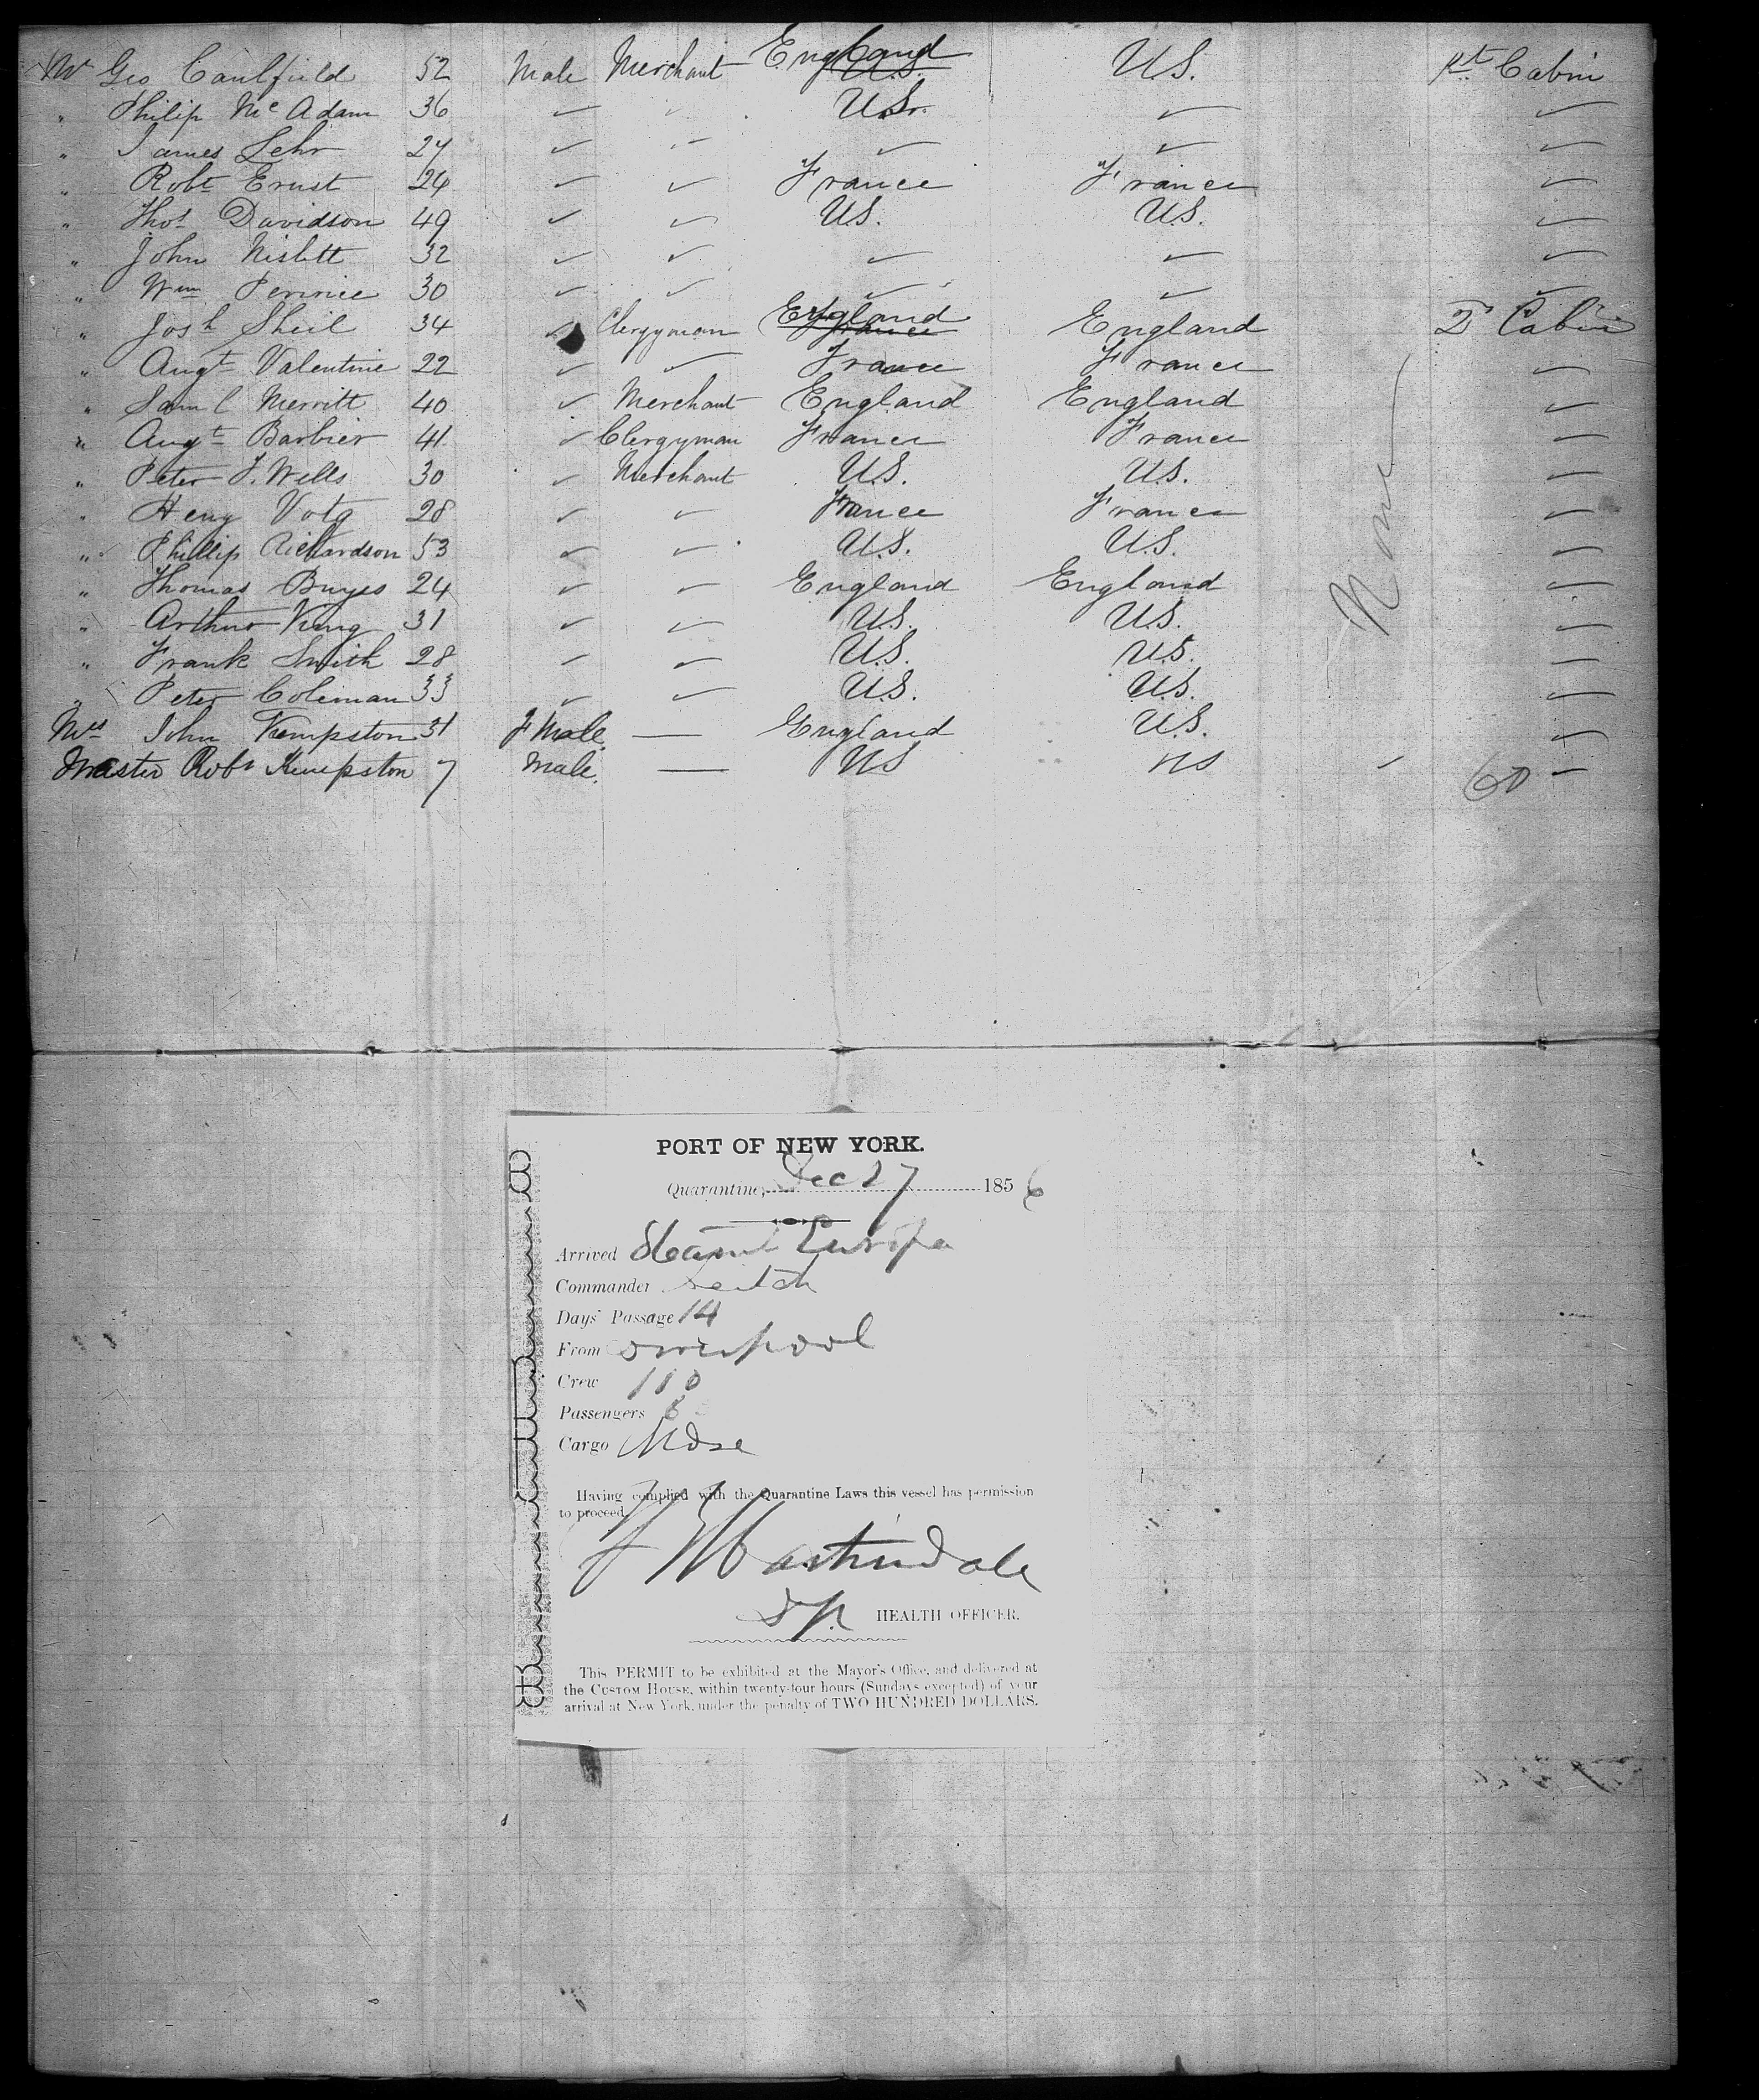 Mr Geo Caulfield 52 Male Merchant England U.S. U.S. 1st Cabin
" Philip McAdam 36 ✓ ✓ U.S. ✓ ✓
" James Lehr 27 ✓ ✓ ✓ ✓ ✓
" Robt Ernst 24 ✓ ✓ France France ✓
" Thos Davidson 49 ✓ ✓ U.S. U.S. ✓
" John Nisbett 32 ✓ ✓ ✓ ✓ ✓
" Wm Perinie 30 ✓ ✓ ✓ ✓ ✓
" Josh Sheil 34 ✓ Clergyman England France England 2d Cabin
" Augt Valentine 22 ✓ ✓ France France ✓
" Saml Merritt 40 ✓ Merchant England England ✓
" Augt Barbier 41 ✓ Clergyman France France ✓
" Peter J. Wells 30 ✓ Merchant U.S. U.S. ✓
" Heny Votg 28 ✓ ✓ France France ✓
" Phillip Richardson 53 ✓ ✓ U.S. U.S. ✓
" Thomas Buyes 24 ✓ ✓ England England ✓
" Arthur King 31 ✓ ✓ U.S. U.S. ✓
" Frank Smith 28 ✓ ✓ U.S. U.S. ✓
" Peter Coleman 33 ✓ ✓ U.S. U.S. ✓
Mrs John Kempston 31 F Male — England U.S. ✓
Master Robt Kempston 7 Male. — US US ✓
None
60
PORT OF NEW YORK.
Quarantine, Dec 27 1856
Arrived Steamr Europa
Commander Leitch
Days' Passage 14
From Liverpool
Crew 110
Passengers
Cargo Mdse
Having complied with the Quarantine Laws this vessel has permission
to proceed.
F Martindale
HEALTH OFFICER.
This PERMIT to be exhibited at the Mayor's Office, and delivered at
the CUSTOM HOUSE, within twenty-four hours (Sundays excepted) of your
arrival at New York, under the penalty of TWO HUNDRED DOLLARS.